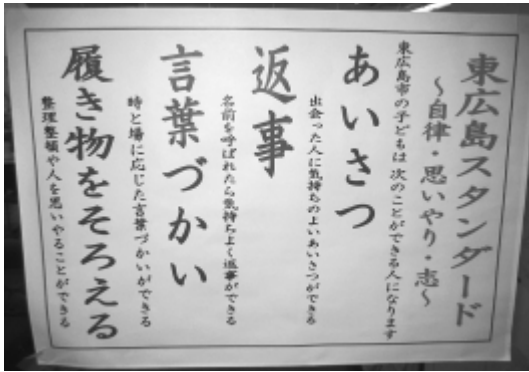 東広島スタンダード
～自律・思いやり・志～
東広島市の子どもは 次のことができる人になります
あいさつ
出会った人に気持ちのよいあいさつができる
返事
名前を呼ばれたら気持ちよく返事ができる
言葉づかい
時と場に応じた言葉づかいができる
履き物をそろえる
整理整頓や人を思いやることができる